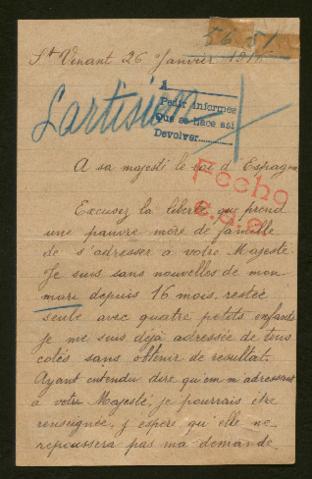 56.51
St Venant 26 Janvier 1916
A
Pedir informes
Que se hace así
Devolver
Lartisien
A sa majesté le roi d'Espagne
Fecho
Excusez la liberté que prend
une pauvre mère de famille
de s'adresser à votre Majesté
Je suis sans nouvelles de mon
mari depuis 16 mois, restée
seule avec quatre petits enfants
je me suis déjà adressée de tous
cotés sans obtenir de resultat.
Ayant entendu dire qu'en m'adressant
à votre Majesté je pourrais être
renseignée, j'espère qu'elle ne
repoussera pas ma demande